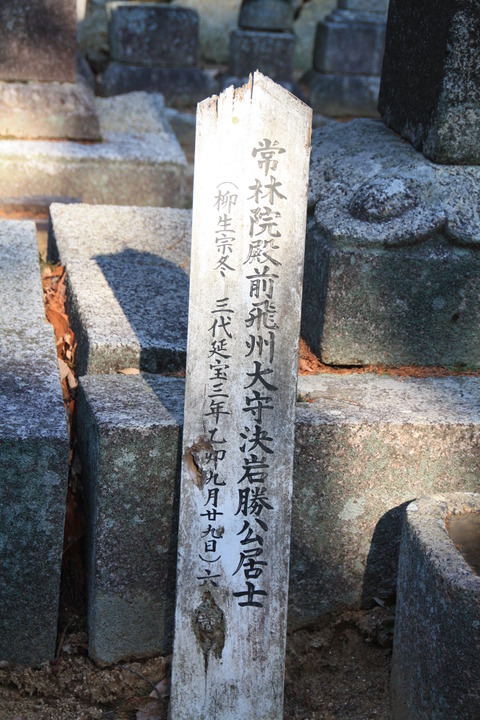 常林院殿前飛州大守決岩勝公居士
（柳生宗冬、三代延宝三年乙卯九月廿九日）六